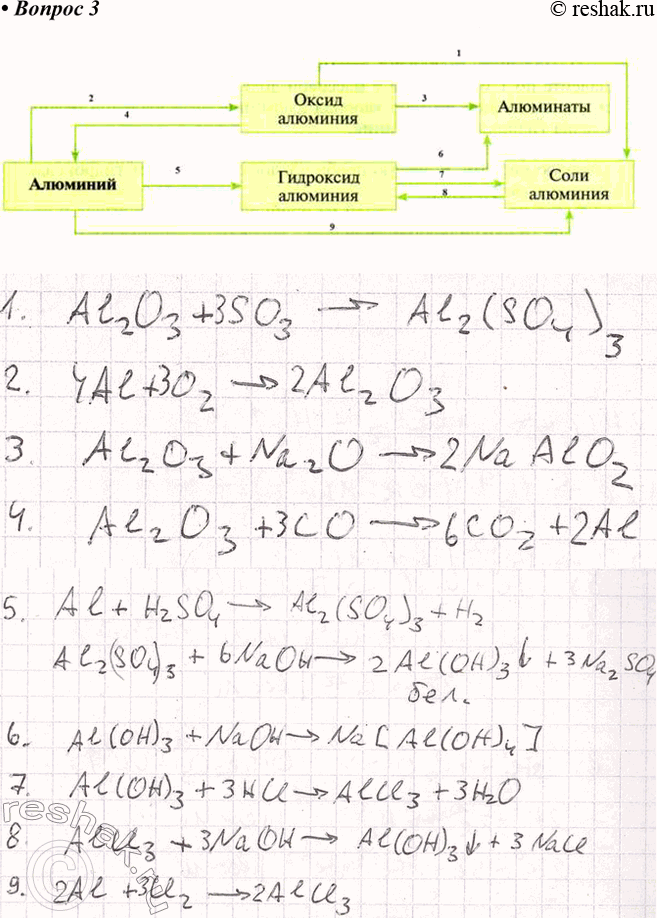 • Вопрос 3
© reshak.ru
1
2
Оксид алюминия
3
Алюминаты
4
Алюминий
5
Гидроксид алюминия
6
7
8
Соли алюминия
9
1. Al₂O₃ + 3SO₃ → Al₂(SO₄)₃
2. 4Al + 3O₂ → 2Al₂O₃
3. Al₂O₃ + Na₂O → 2NaAlO₂
4. Al₂O₃ + 3CO → 6CO₂ + 2Al
5. Al + H₂SO₄ → Al₂(SO₄)₃ + H₂
Al₂(SO₄)₃ + 6NaOH → 2Al(OH)₃↓ + 3Na₂SO₄
бел.
6. Al(OH)₃ + NaOH → Na[Al(OH)₄]
7. Al(OH)₃ + 3HCl → AlCl₃ + 3H₂O
8 AlCl₃ + 3NaOH → Al(OH)₃↓ + 3NaCl
9. 2Al + 3Cl₂ → 2AlCl₃